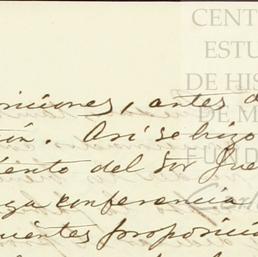 CENT
ESTU
DE HIS
DE M
FUND
Carl
riciones, antes d
ín. Así se hizo
iento del Sor Jue
ga conferencia
uientes proposicio